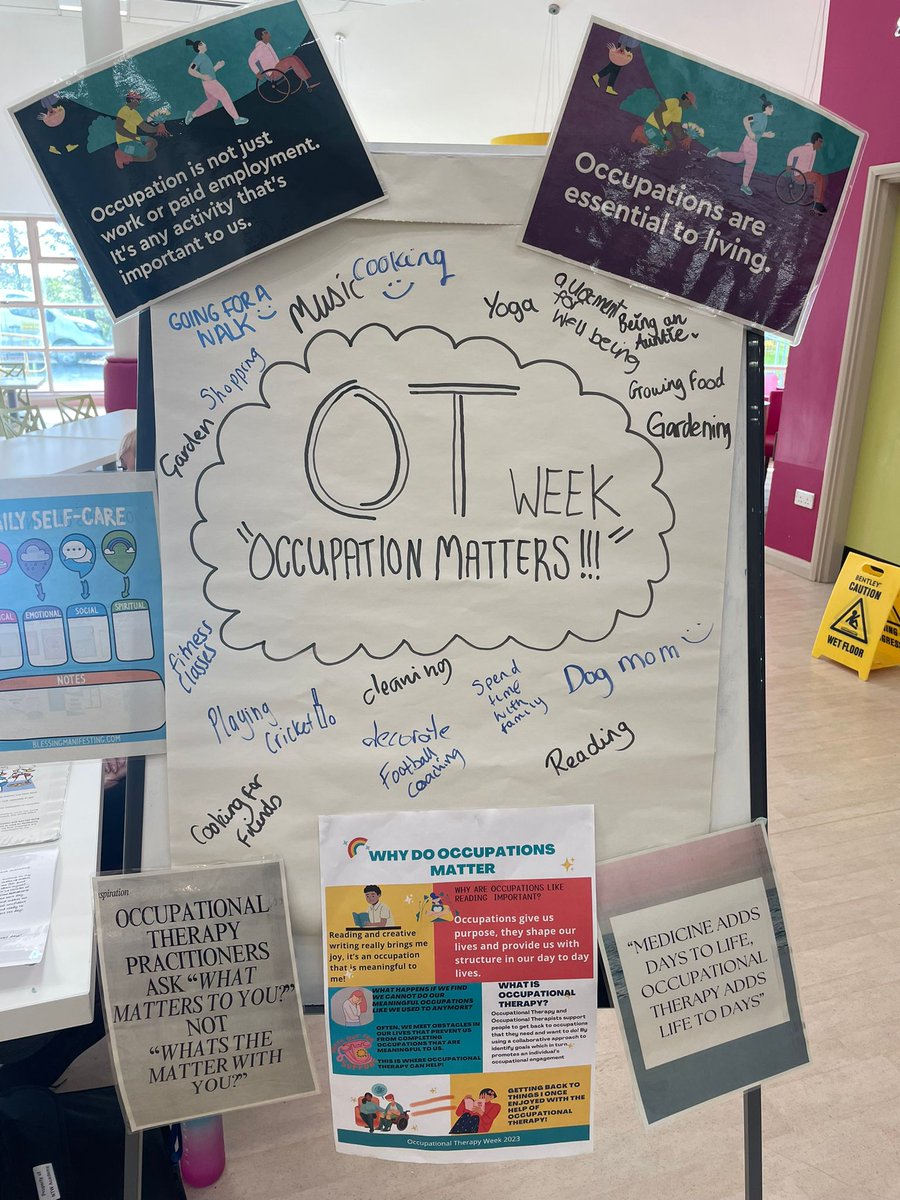 Occupation is not just
work or paid employment.
It's any activity that's
important to us.
Occupations are
essential to living.
GOING FOR A
WALK
Music
Cooking
Yoga
for
Well being
Being an
Auntie
Shopping
Garden
Growing Food
Gardening
OT WEEK
"OCCUPATION MATTERS!!!"
Fitness
classes
Playing
Cricket
cleaning
decorate
Football
Coaching
Spend
time
with
family
Dog mom
Reading
Cooking for
Friends
AILY SELF-CARE
CAL
EMOTIONAL
SOCIAL
SPIRITUAL
NOTES
BLESSINGMANIFESTING.COM
BENTLEY
CAUTION
WET FLOOR
spiration
OCCUPATIONAL
THERAPY
PRACITIONERS
ASK "WHAT
MATTERS TO YOU?"
NOT
"WHATS THE
MATTER WITH
YOU?"
WHY DO OCCUPATIONS
MATTER
Reading and creative
writing really brings me
joy, it's an occupation
that is meaningful to
me!
WHY ARE OCCUPATIONS LIKE
READING IMPORTANT?
Occupations give us
purpose, they shape our
lives and provide us with
structure in our day to day
lives.
WHAT HAPPENS IF WE FIND
WE CANNOT DO OUR
MEANINGFUL OCCUPATIONS
LIKE WE USED TO ANYMORE?
OFTEN, WE MEET OBSTACLES IN
OUR LIVES THAT PREVENT US
FROM COMPLETING
OCCUPATIONS THAT ARE
MEANINGFUL TO US.
THIS IS WHERE OCCUPATIONAL
THERAPY CAN HELP!
WHAT IS
OCCUPATIONAL
THERAPY?
Occupational Therapy and
Occupational Therapists support
people to get back to occupations
that they need and want to do! By
using a collaborative approach to
identify goals which in turn
promotes an individual's
occupational engagement
GETTING BACK TO
THINGS I ONCE
ENJOYED WITH THE
HELP OF
OCCUPATIONAL
THERAPY!
Occupational Therapy Week 2023
"MEDICINE ADDS
DAYS TO LIFE,
OCCUPATIONAL
THERAPY ADDS
LIFE TO DAYS"